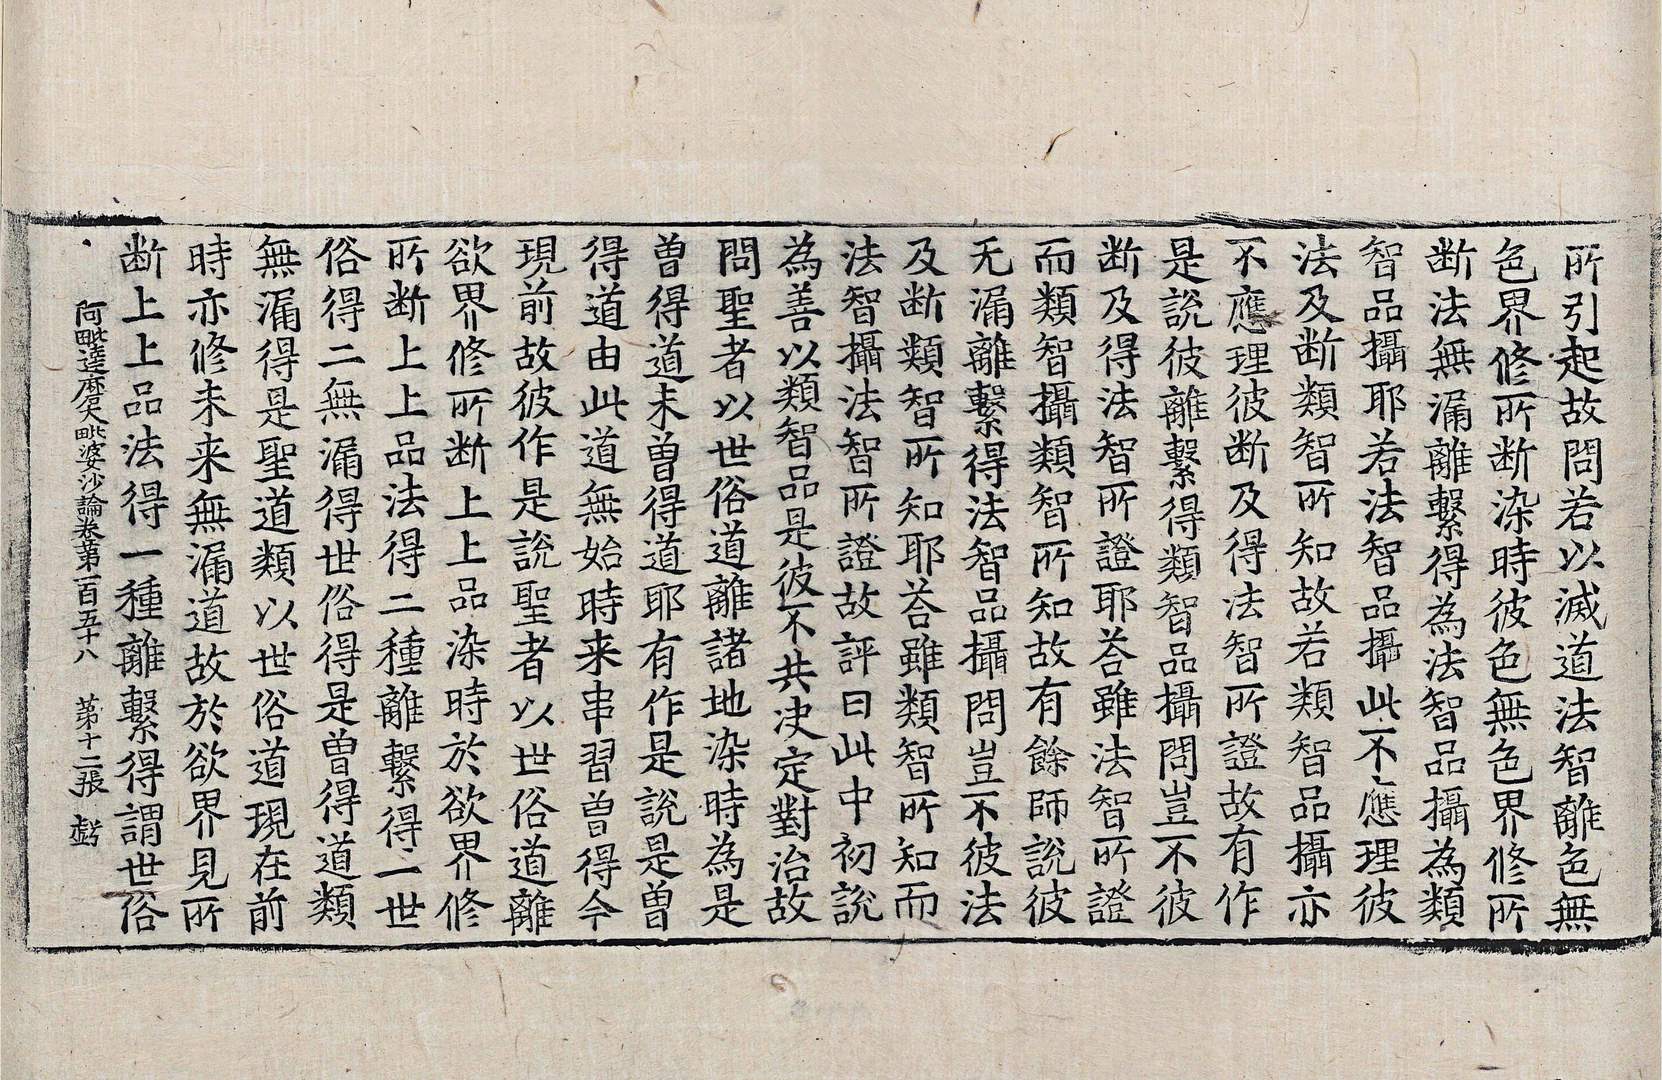 所引起故問若以滅道法智離色無
色界修所断染時彼色無色界修所
断法無漏離繫得為法智品攝為類
智品攝耶若法智品攝此不應理彼
法及断類智所知故若類智品攝亦
不應理彼断及得法智所證故有作
是說彼離繫得類智品攝問豈不彼
断及得法智所證耶荅雖法智所證
而類智攝類智所知故有餘師說彼
无漏離繫得法智品攝問豈不彼法
及断類智所知耶荅雖類智所知而
法智攝法智所證故評曰此中初說
為善以類智品是彼不共决定對治故
問聖者以世俗道離諸地染時為是
曾得道未曾得道耶有作是說是曾
得道由此道無始時来串習曾得今
現前故彼作是說聖者以世俗道離
欲界修所断上上品染時於欲界修
所断上上品法得二種離繫得一世
俗得二無漏得世俗得是曾得道類
無漏得是聖道類以世俗道現在前
時亦修未来無漏道故於欲界見所
断上上品法得一種離繫得謂世俗
阿毗達磨大毗婆沙論卷第一百五十八 第十二張 虧